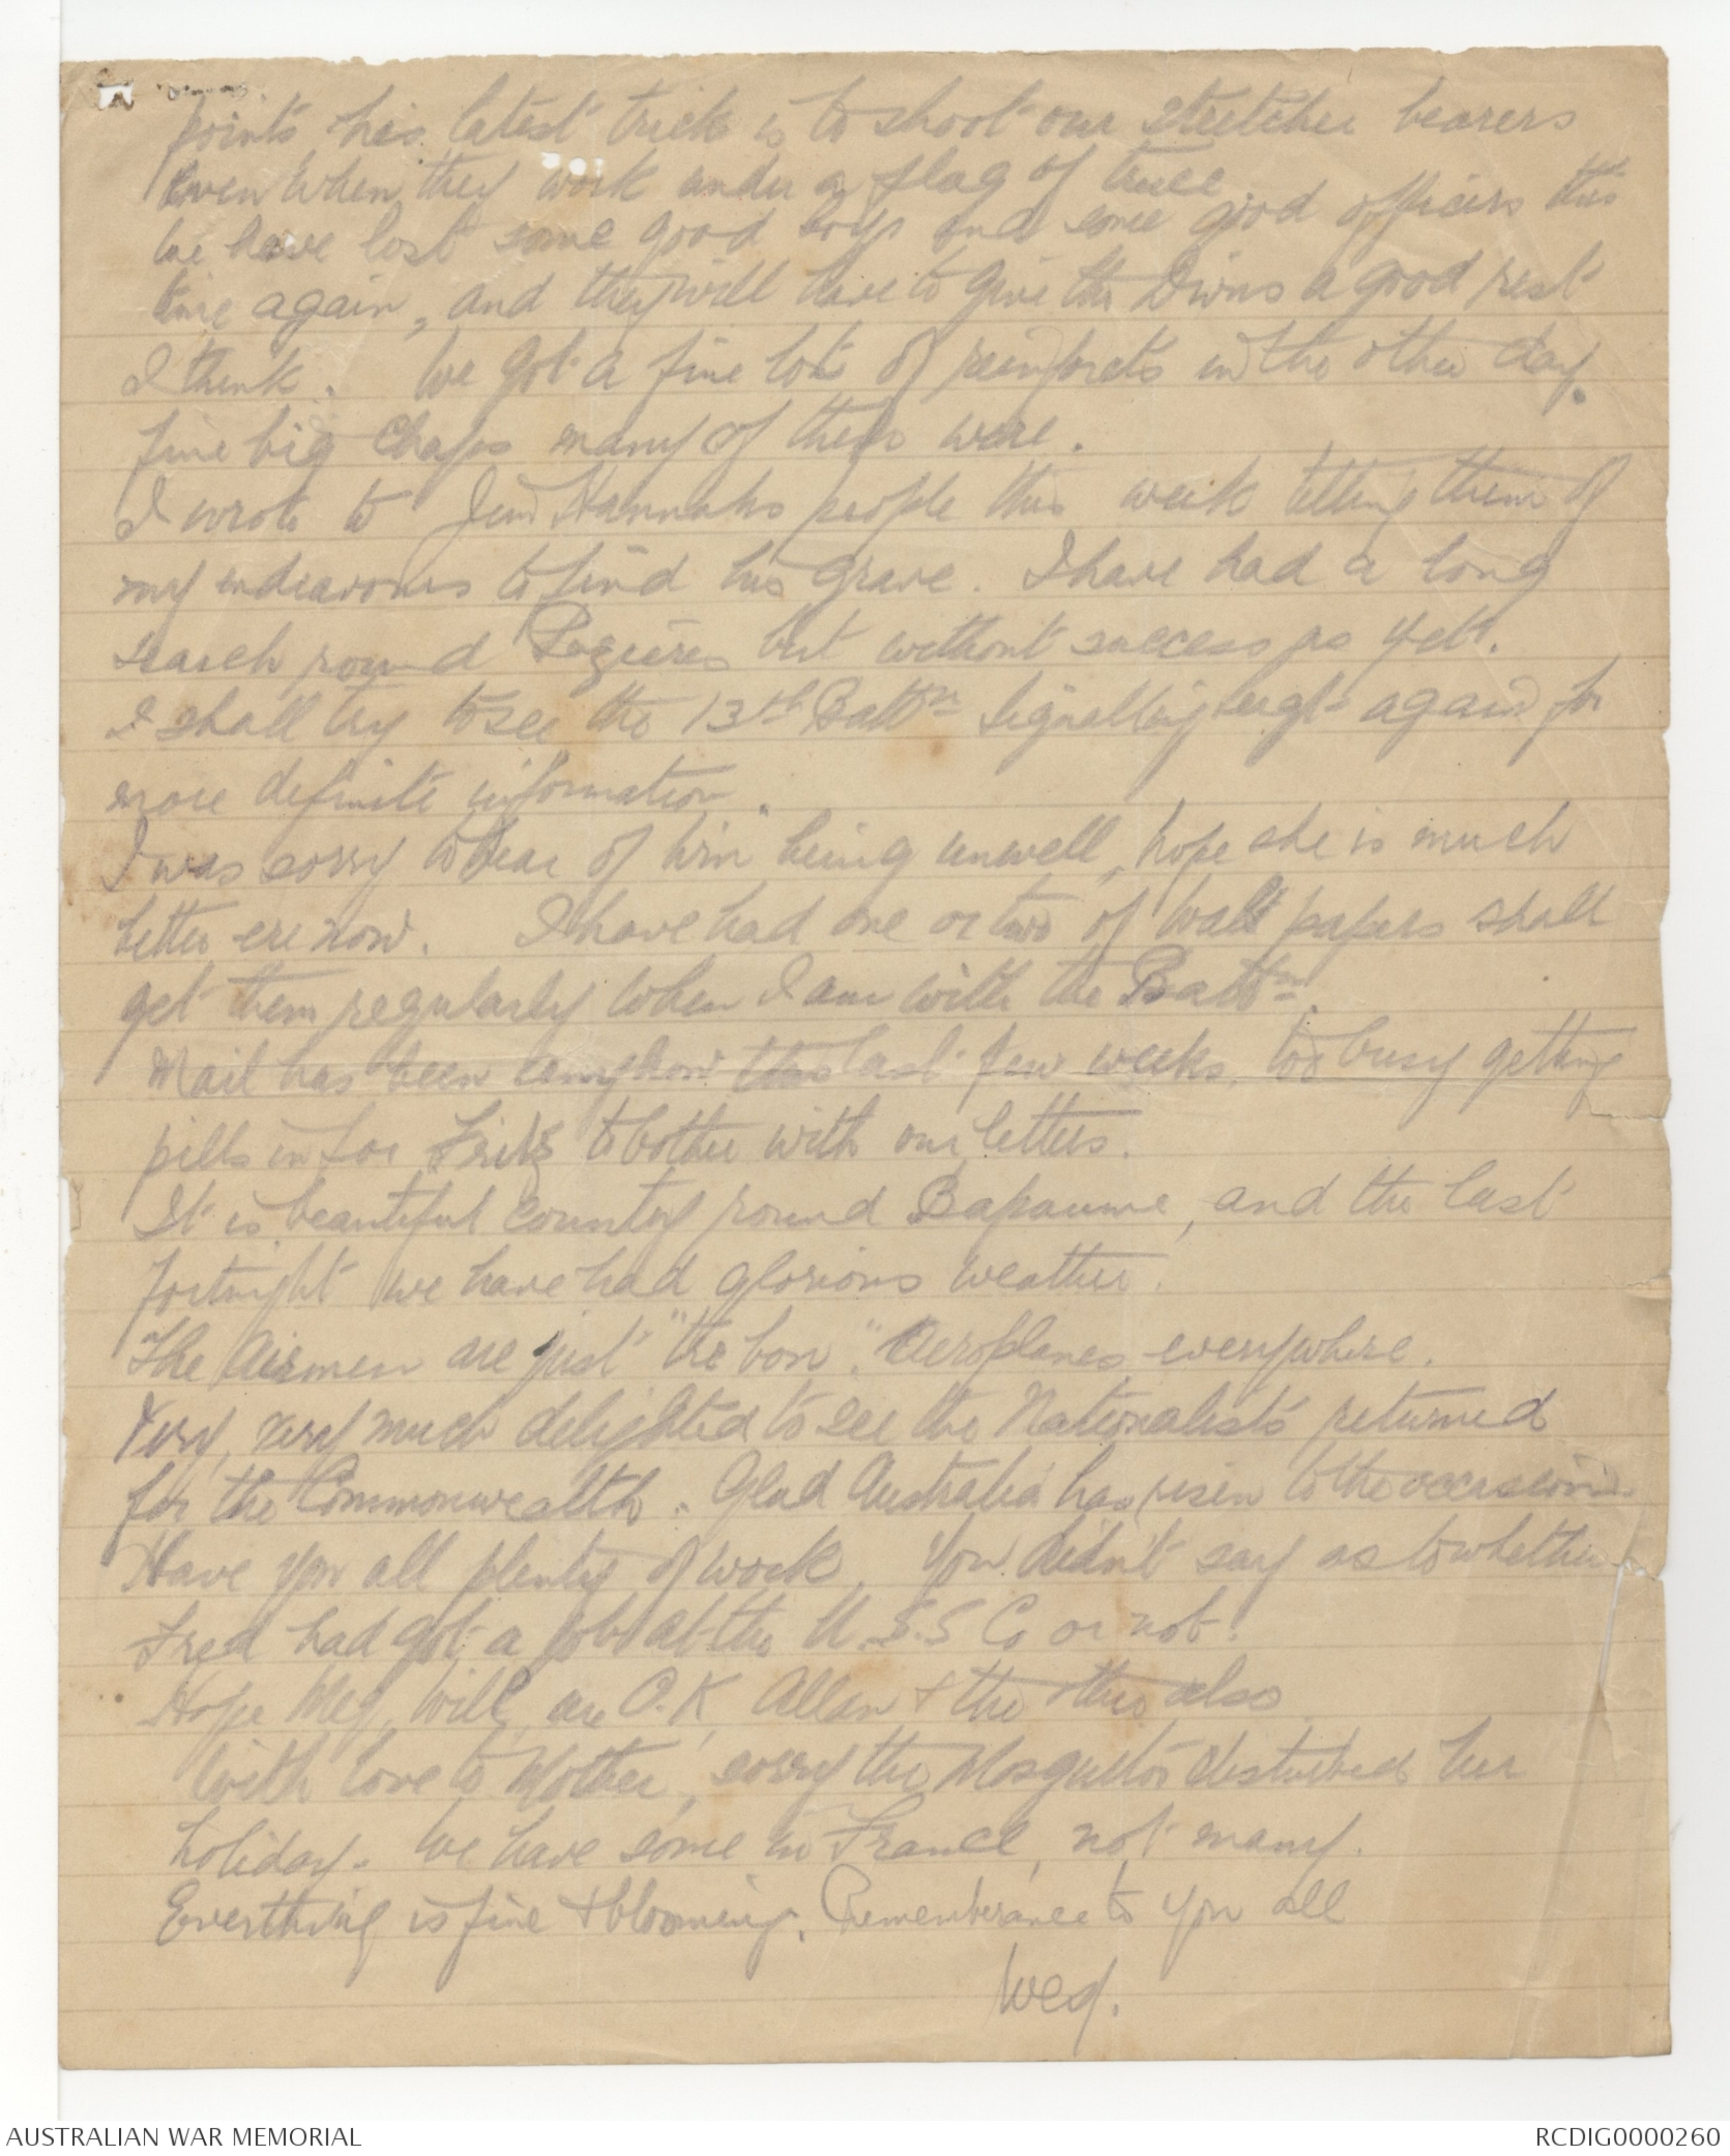 points his latest trick is to shoot our stretcher bearers
even when they work under a flag of truce.
We have lost some good boys and some good officers this
time again, and they will have to give the Divns a good rest
I think. We got a fine lot of reinforcts in the other day.
fine big chaps many of them were.
I wrote to Jim Hannahs people this week telling them of
my endeavours to find his grave. I have had a long
search round Pozieres but without success as yet.
I shall try to see the 13th Battn Signalling again for
more definite information.
I was sorry to hear of Win being unwell, hope she is much
better ere now. I have had one or two of Walt papers shall
get them regularly when I am with the Battn.
Mail has been anyhow this last few weeks, too busy getting
pills in for Fritz to bother with our letters.
It is beautiful country round Bapaume, and the last
fortnight we have had glorious weather.
The Airmen are just "tre bon". Aeroplanes everywhere.
Very, very much delighted to see the Nationalists returned
for the Commonwealth. Glad Australia has risen to the occasion.
Have you all plenty of work. You didn't say as to whether
Fred had got a job at the U.S.S Co or not.
Hope Meg, Will, are O.K, Allan & the others also
With love to Mother, sorry the Mosquitos disturbed her
holiday. We have some in France, not many.
Everthing is fine & blooming. Rememberance to you all
Wed.
AUSTRALIAN WAR MEMORIAL
RCDIG0000260